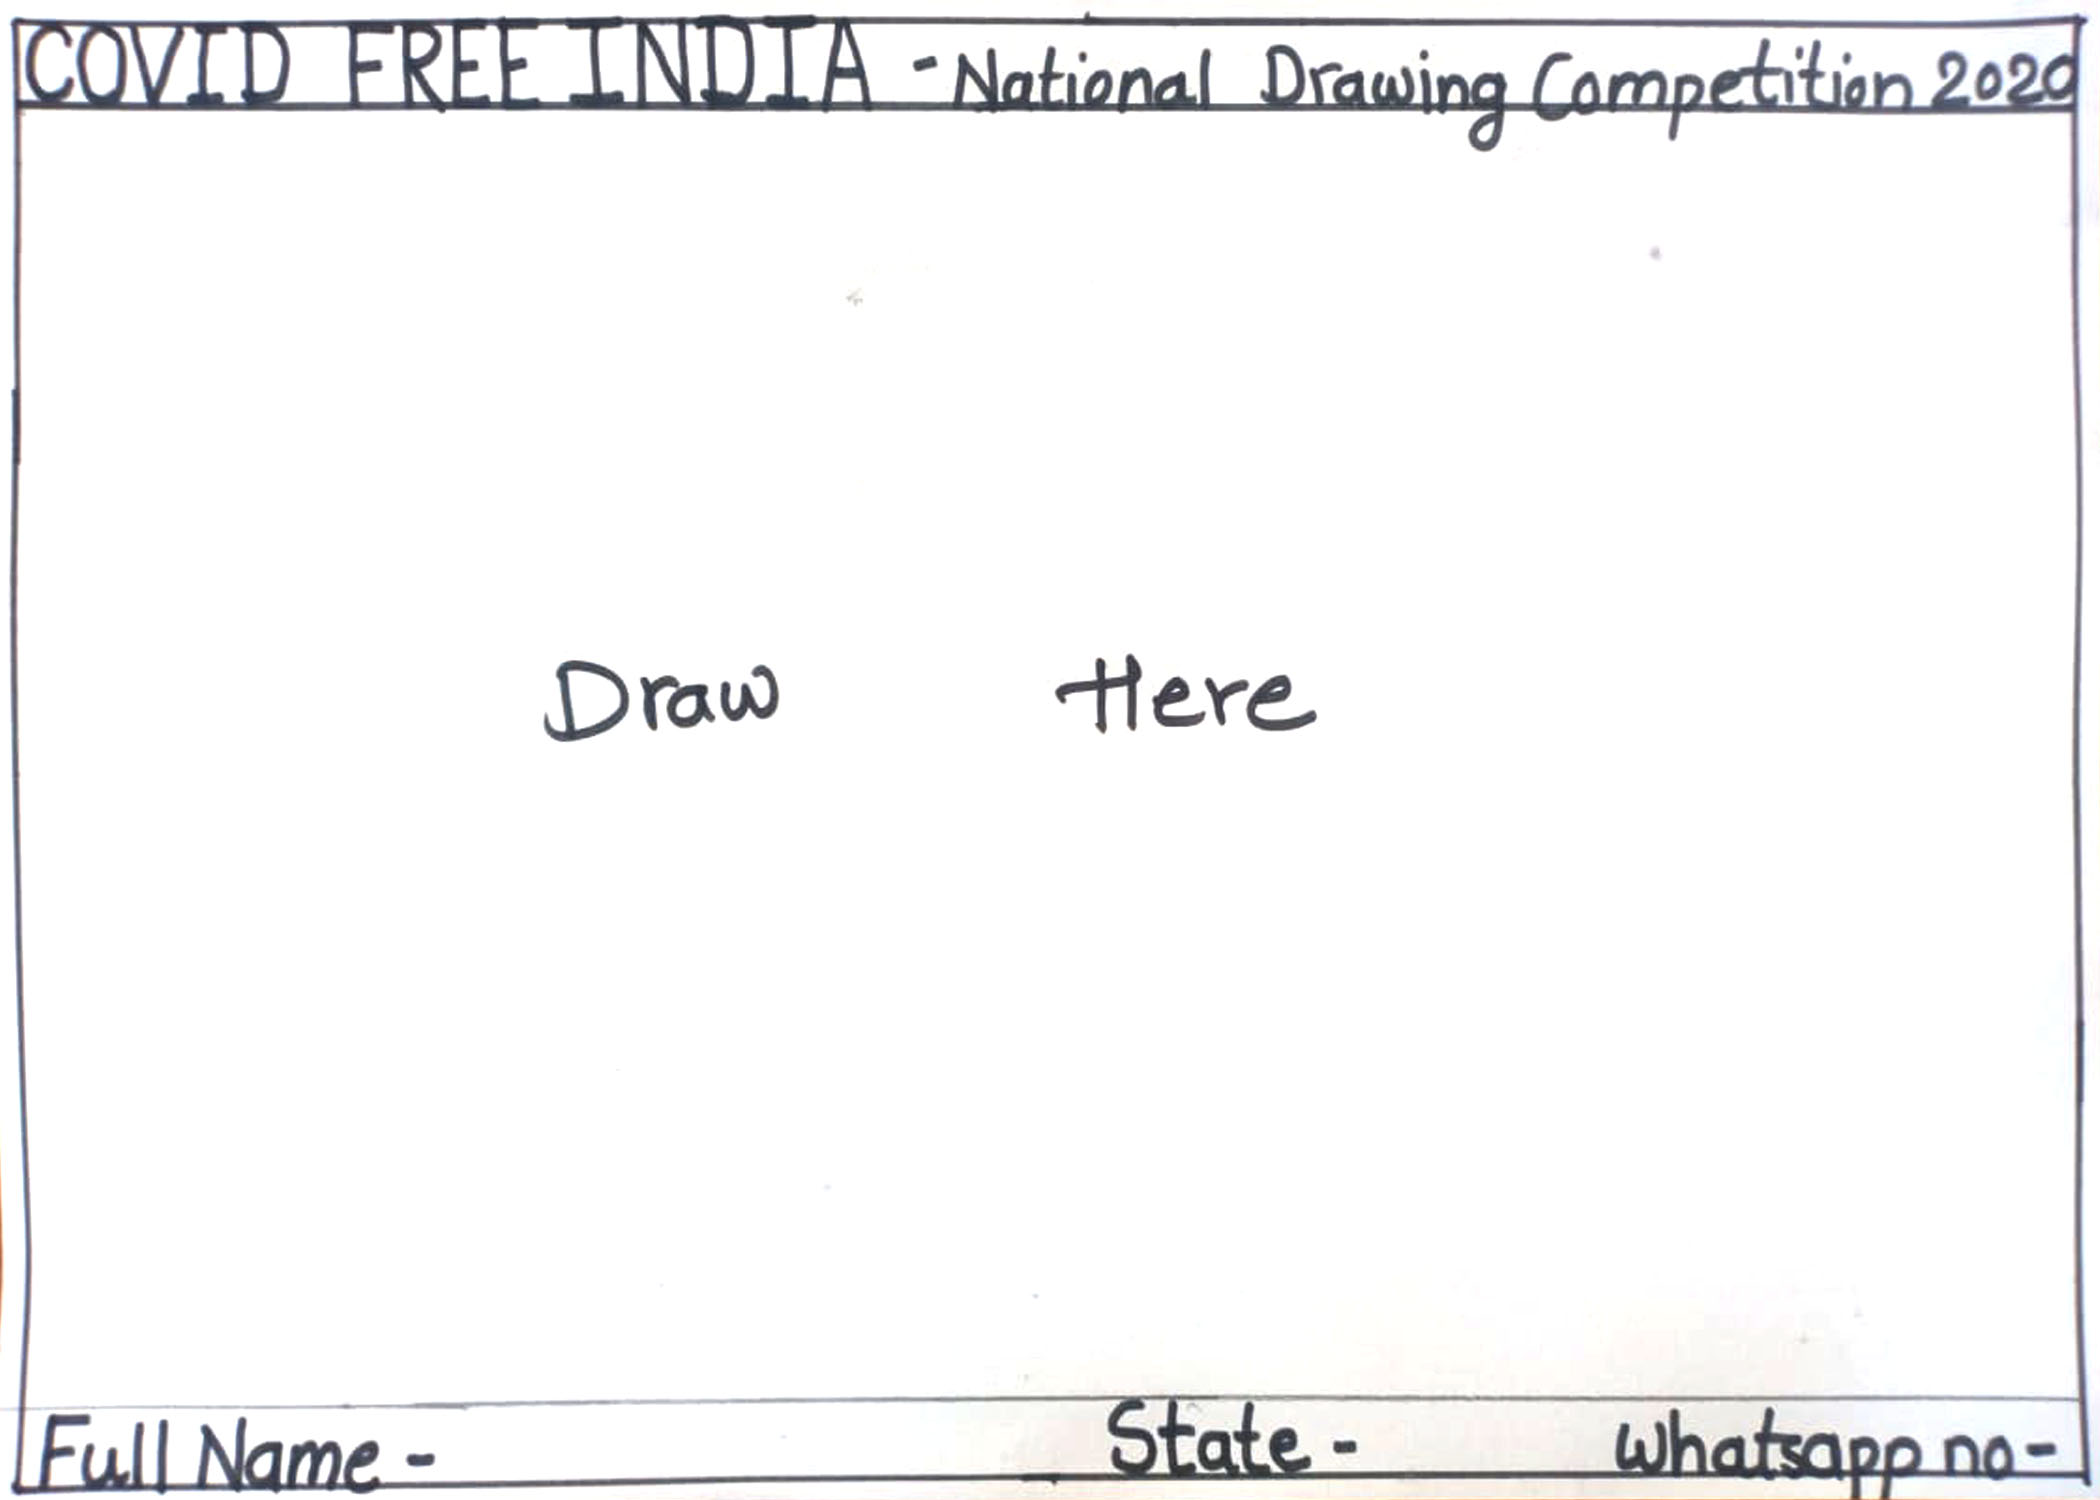 COVID FREE INDIA - National Drawing Competition 2020
Draw Here
Full Name - State - Whatsapp no -